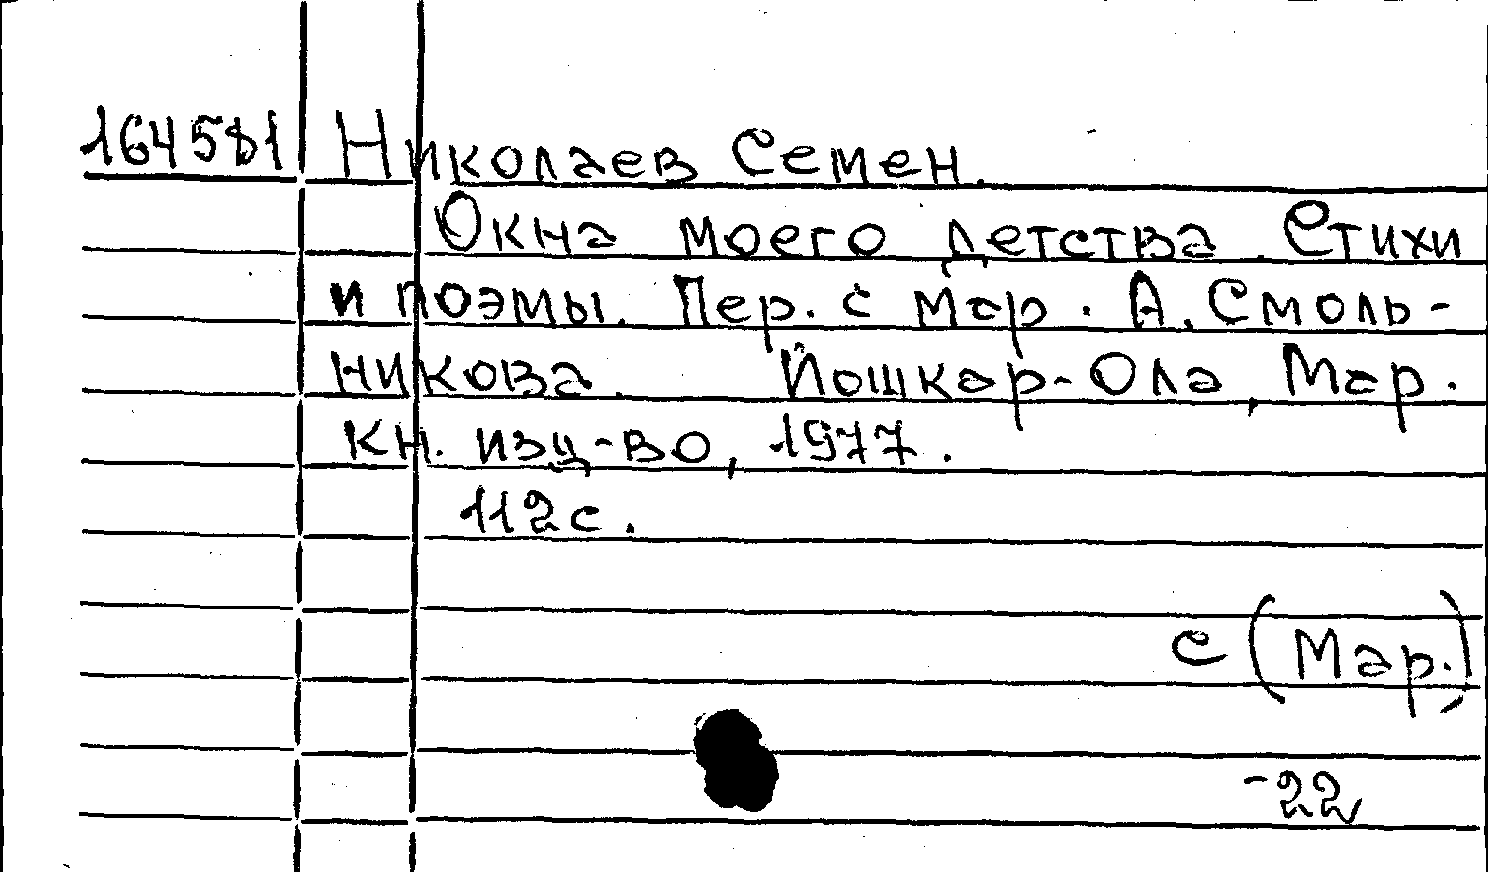 164581 Николаев Семен.
Окна моего детства. Стихи
и поэмы. Пер. с мар. А. Смоль-
никова. Йошкар-Ола, Мар.
кн. изд-во, 1977.
112 с.
С (Мар.)
-22